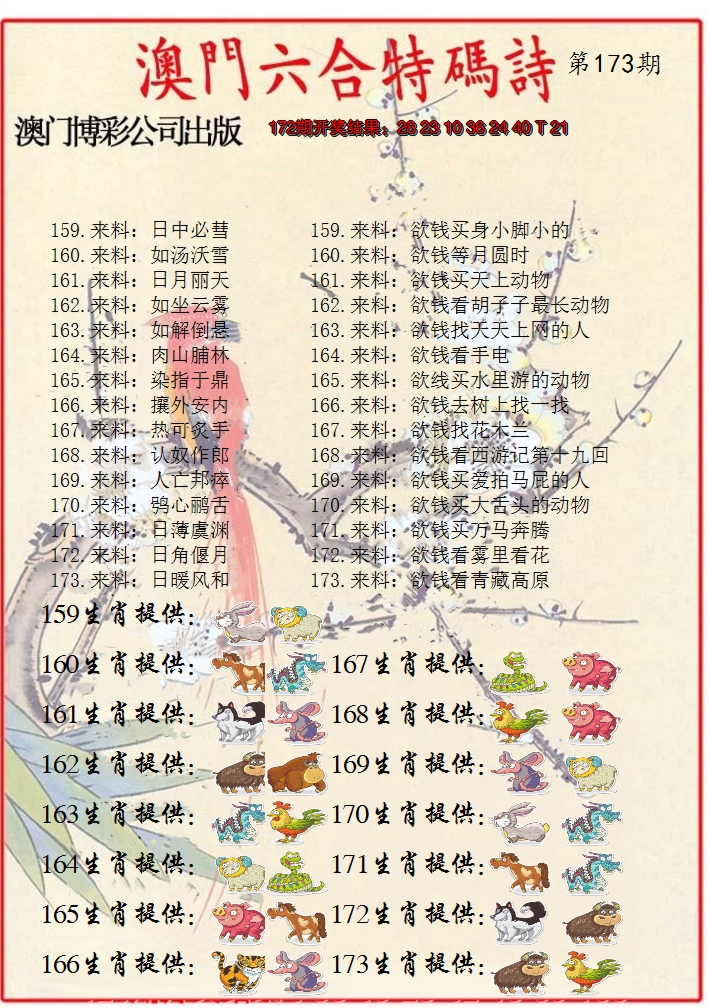 澳門六合特碼詩 第173期
澳门博彩公司出版 172期开奖结果：28 23 10 36 24 40 T 21
159.来料：日中必彗 159.来料：欲钱买身小脚小的
160.来料：如汤沃雪 160.来料：欲钱等月圆时
161.来料：日月丽天 161.来料：欲钱买天上动物
162.来料：如坐云雾 162.来料：欲钱看胡子子最长动物
163.来料：如解倒悬 163.来料：欲钱找天天上网的人
164.来料：肉山脯林 164.来料：欲钱看手电
165.来料：染指于鼎 165.来料：欲线买水里游的动物
166.来料：攘外安内 166.来料：欲钱去树上找一找
167.来料：热可炙手 167.来料：欲钱找花木兰
168.来料：认奴作郎 168.来料：欲钱看西游记第十九回
169.来料：人亡邦瘁 169.来料：欲钱买爱拍马屁的人
170.来料：鸮心鹂舌 170.来料：欲钱买大舌头的动物
171.来料：日薄虞渊 171.来料：欲钱买万马奔腾
172.来料：日角偃月 172.来料：欲钱看雾里看花
173.来料：日暖风和 173.来料：欲钱看青藏高原
159生肖提供：
160生肖提供： 167生肖提供：
161生肖提供： 168生肖提供：
162生肖提供： 169生肖提供：
163生肖提供： 170生肖提供：
164生肖提供： 171生肖提供：
165生肖提供： 172生肖提供：
166生肖提供： 173生肖提供：